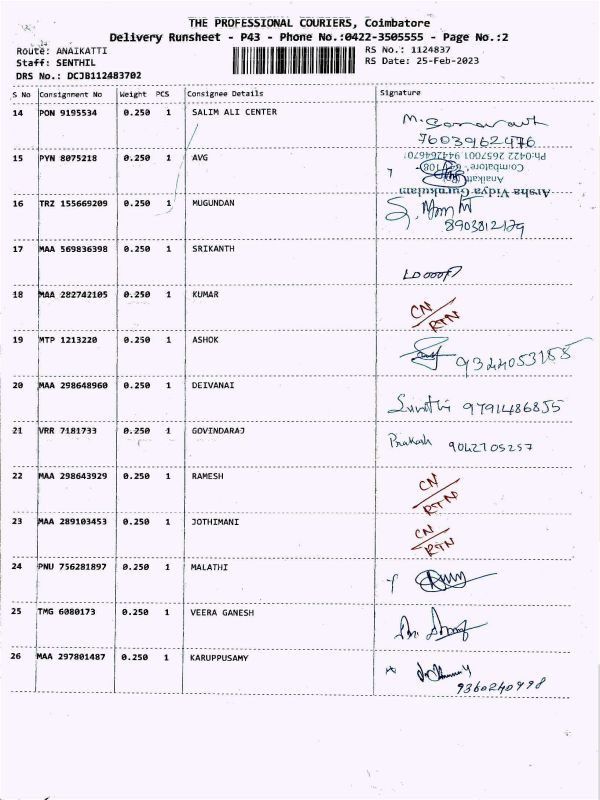 THE PROFESSIONAL COURIERS, Coimbatore
Delivery Runsheet - P43 - Phone No.:0422-3505555 - Page No.:2
Route: ANAIKATTI
RS No.: 1124837
Staff: SENTHIL
RS Date: 25-Feb-2023
DRS No.: DCJB112483702
S No Consignment No Weight PCS Consignee Details Signature
14 PON 9195534 0.250 1 SALIM ALI CENTER
7603962476
15 PYN 8075218 0.250 1 AVG
Ph:0422 2657001
Coimbatore
Anaikatti
Arsha Vidya Gurukulam
16 TRZ 155669209 0.250 1 MUGUNDAN
8903812179
17 MAA 569836398 0.250 1 SRIKANTH
18 MAA 282742105 0.250 1 KUMAR CN/RTN
19 MTP 1213220 0.250 1 ASHOK
20 MAA 298648960 0.250 1 DEIVANAI 9791486855
21 VRR 7181733 0.250 1 GOVINDARAJ Prakash 9042705257
22 MAA 298643929 0.250 1 RAMESH CN/RTN
23 MAA 289103453 0.250 1 JOTHIMANI CN/RTN
24 PNU 756281897 0.250 1 MALATHI
25 TMG 6080173 0.250 1 VEERA GANESH
26 MAA 297801487 0.250 1 KARUPPUSAMY
9360240998